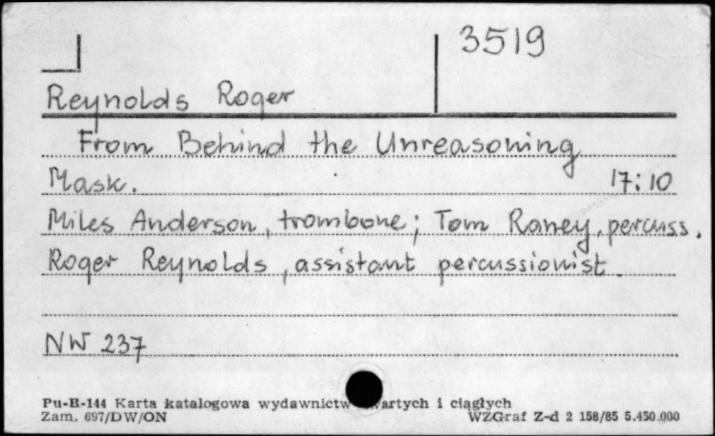 3519
Reynolds Roger
From Behind the Unreasoning
Mask. 17:10
Miles Anderson, trombone; Tom Raney, percuss.
Roger Reynolds, assistant percussionist.
NW 237
Pu-B-144 Karta katalogowa wydawnictw artych i ciągłych
Zam. 697/DW/ON WZGraf Z-d 2 158/85 5.450.000